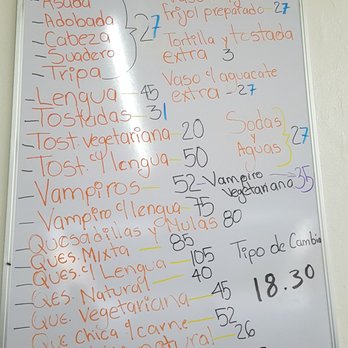 -Asada
-Adobada
-Cabeza
-Suadero
-Tripa
27
-Lengua-45
-Tostadas-31
-Tost. Vegetariana-20
-Tost. c/lengua-50
-Vampiros-52-Vampiro Vegetariana 35
-Vampiro c/lengua-75
-Quesadillas y Mulas 80
-Ques. Mixta-85
-Ques. c/Lengua-105
-Ques. Natural-40
-Que. Vegetariana-45
-Que Chica c/carne-52
natural-26
Vaso
frijol preparado-27
Tortilla y tostada
extra 3
Vaso c/aguacate
extra-27
Sodas
Aguas
27
Tipo de Cambio
18.30